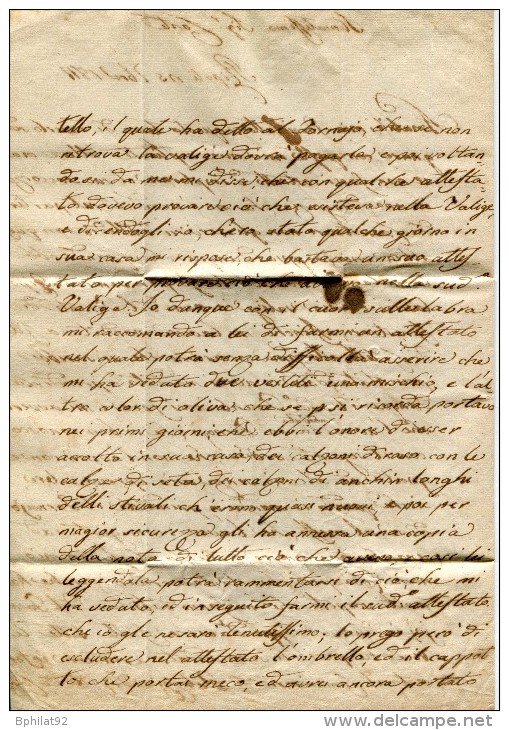 tello, il quale ha detto al Fornajo, che se non
ritrova la valige dovrà pagarla, e poi voltan-
dosi da me mi disse, che con qualche attesta-
to dovevo provare ciò che avevo nella Valige,
e dicendogli io ch'era stato qualche giorno in
sua casa mi rispose, che bastava un suo attes-
tato per provare ciò che nella sud.a
Valiga. Io dunque con il cuore sulle labra
mi raccomando a lei di farmi un attestato
nel quale potrà senza difficoltà asserire che
mi ha veduto due vestiti uno mischio, e l'al-
tro color di oliva, che se si ricorda portavo
nei primi giorni che ebbi l'onore di esser
accolto in sua casa, dei calzoni di raso con le
calze di seta, dei calzoni di anchin longhi
delli stivali ch'eran quasi nuovi, e poi per
magior sicurezza gli ho annessa una copia
della nota di tutto ciò che avevo e così lei
leggendola potrà rammentarsi di ciò, che mi
ha veduto, ed in seguito farmi il sud.o attestato,
che io gle ne sarò tenutissimo; lo prego però di
escludere nel attestato l'ombrello, ed il cappot-
to che portai meco, ed avrei ancora portato
Bphilat92